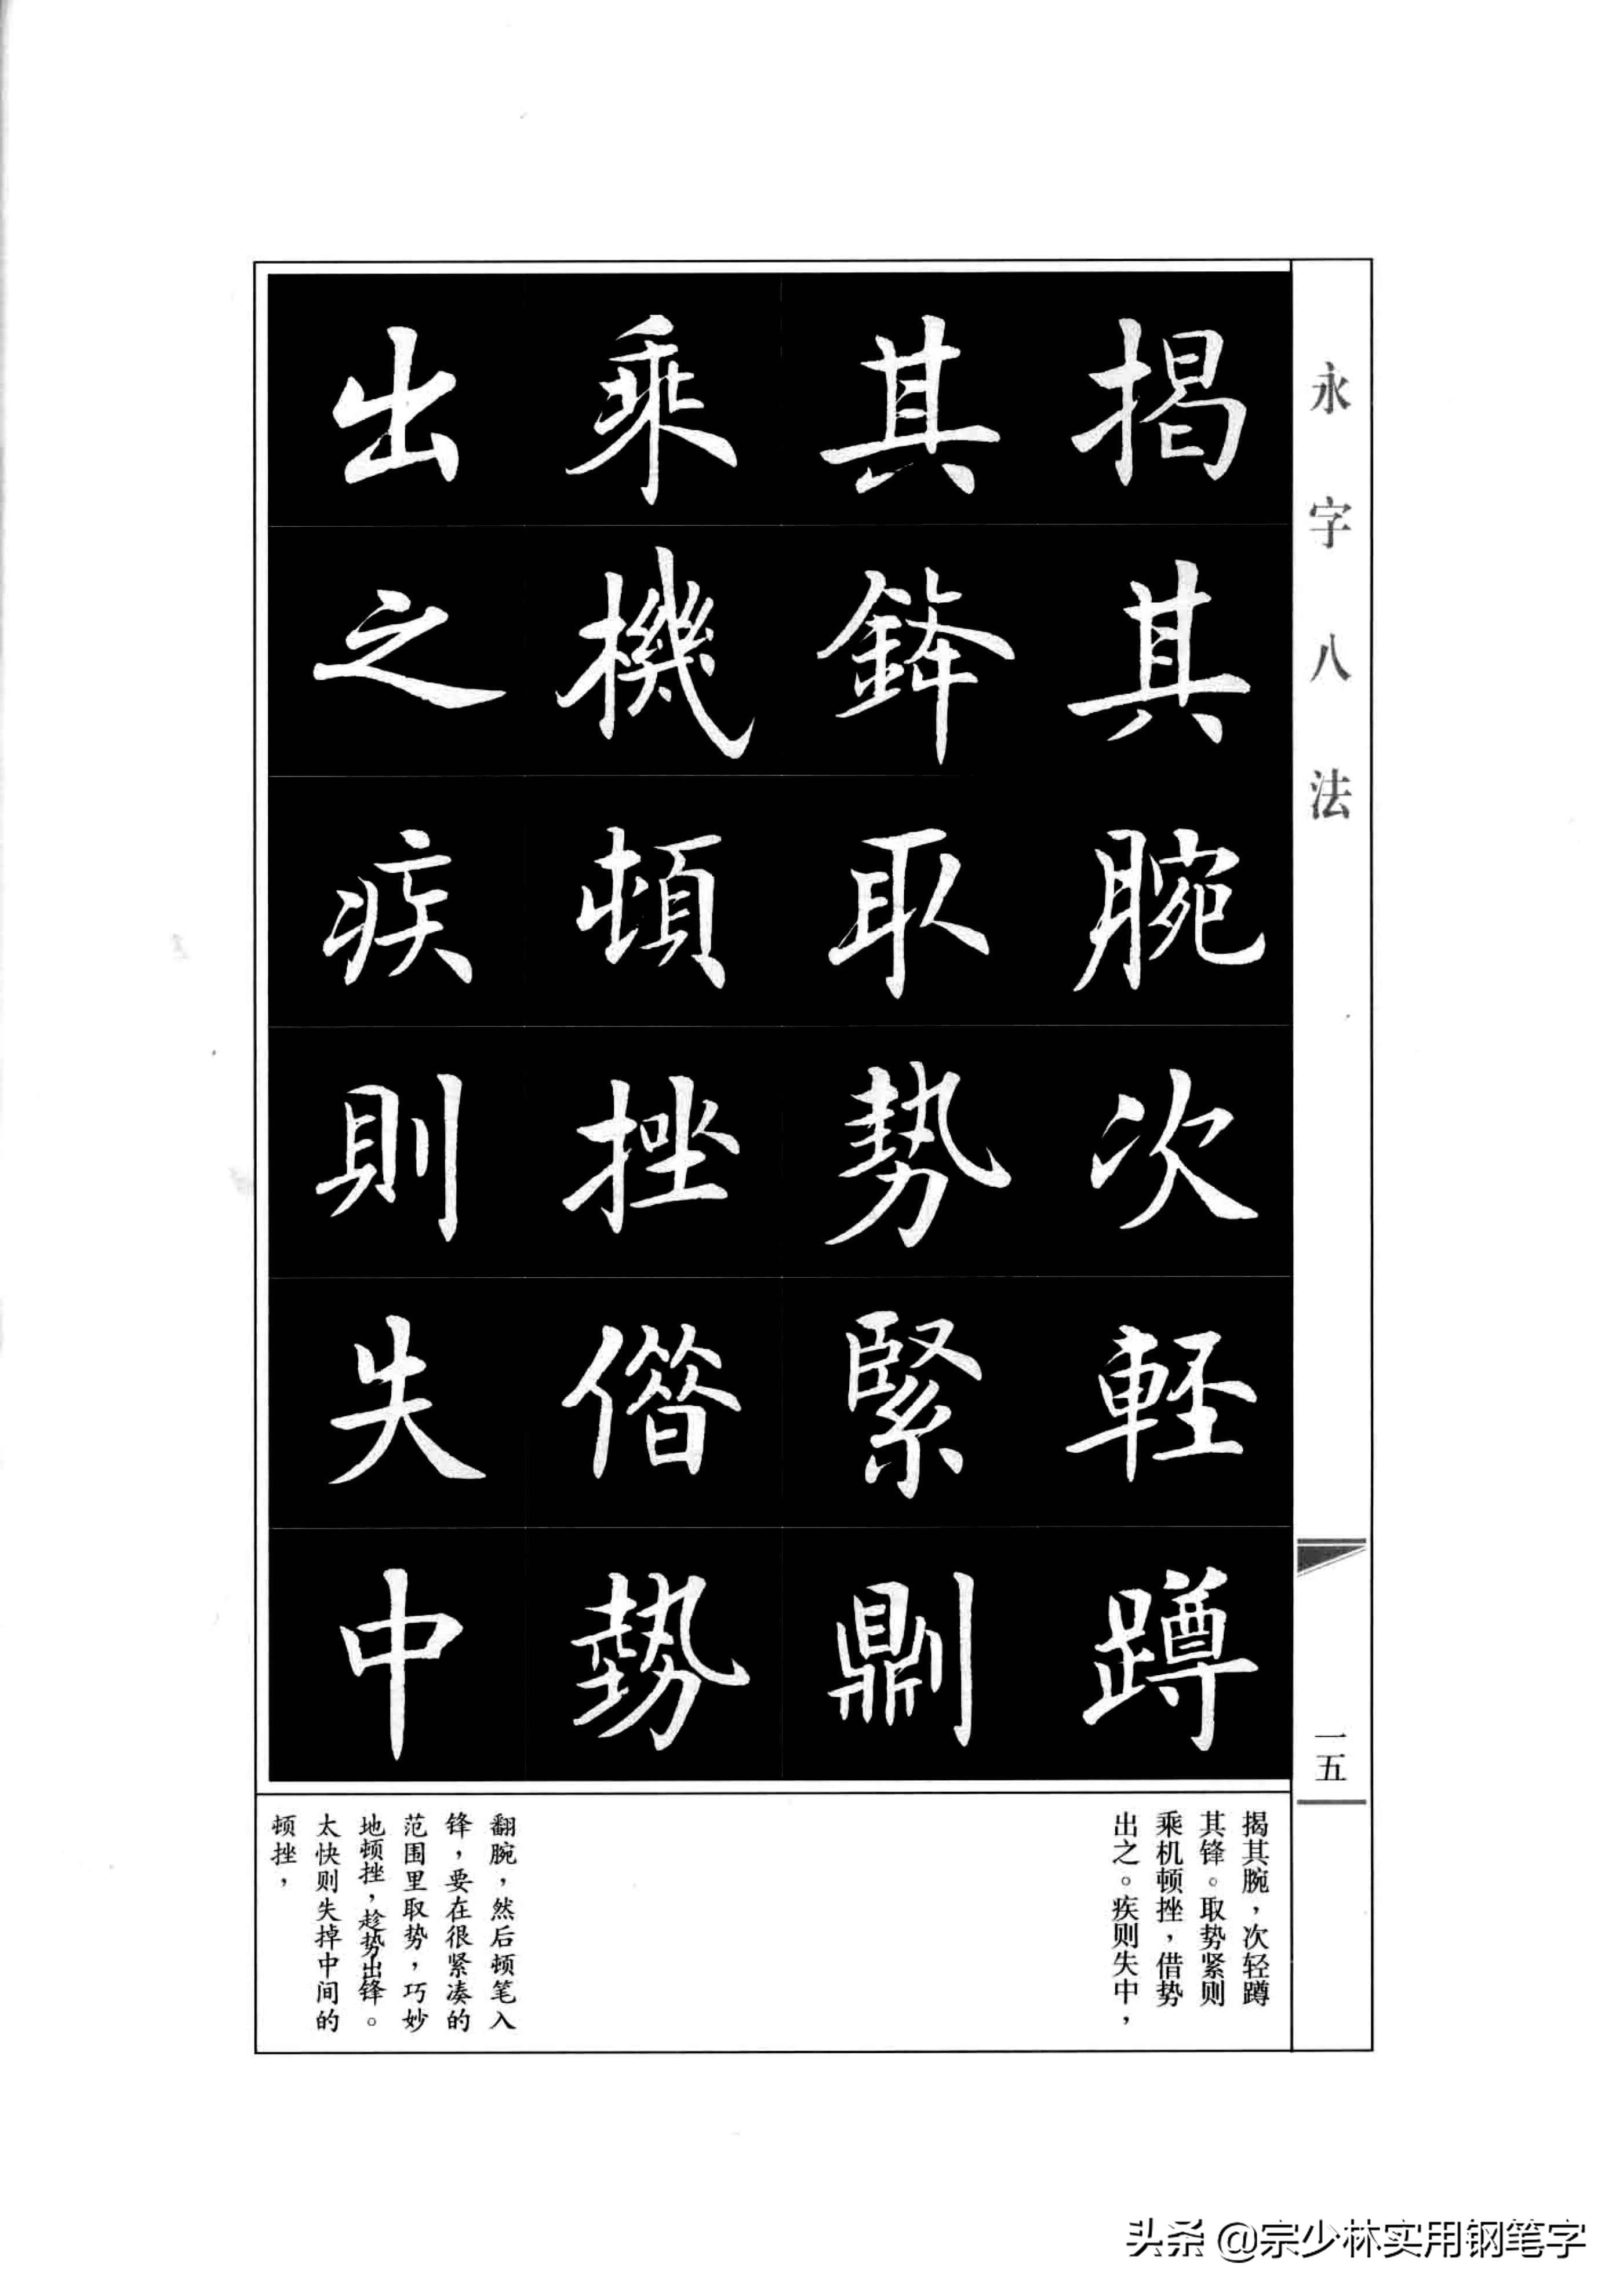 永字八法
一五
揭其腕次輕蹲
其鋒取勢緊則
乘機頓挫借勢
出之疾則失中
揭其腕，次轻蹲
其锋。取势紧则
乘机顿挫，借势
出之。疾则失中，
翻腕，然后顿笔入
锋，要在很紧凑的
范围里取势，巧妙
地顿挫，趁势出锋。
太快则失掉中间的
顿挫，
头条 @宗少林实用钢笔字